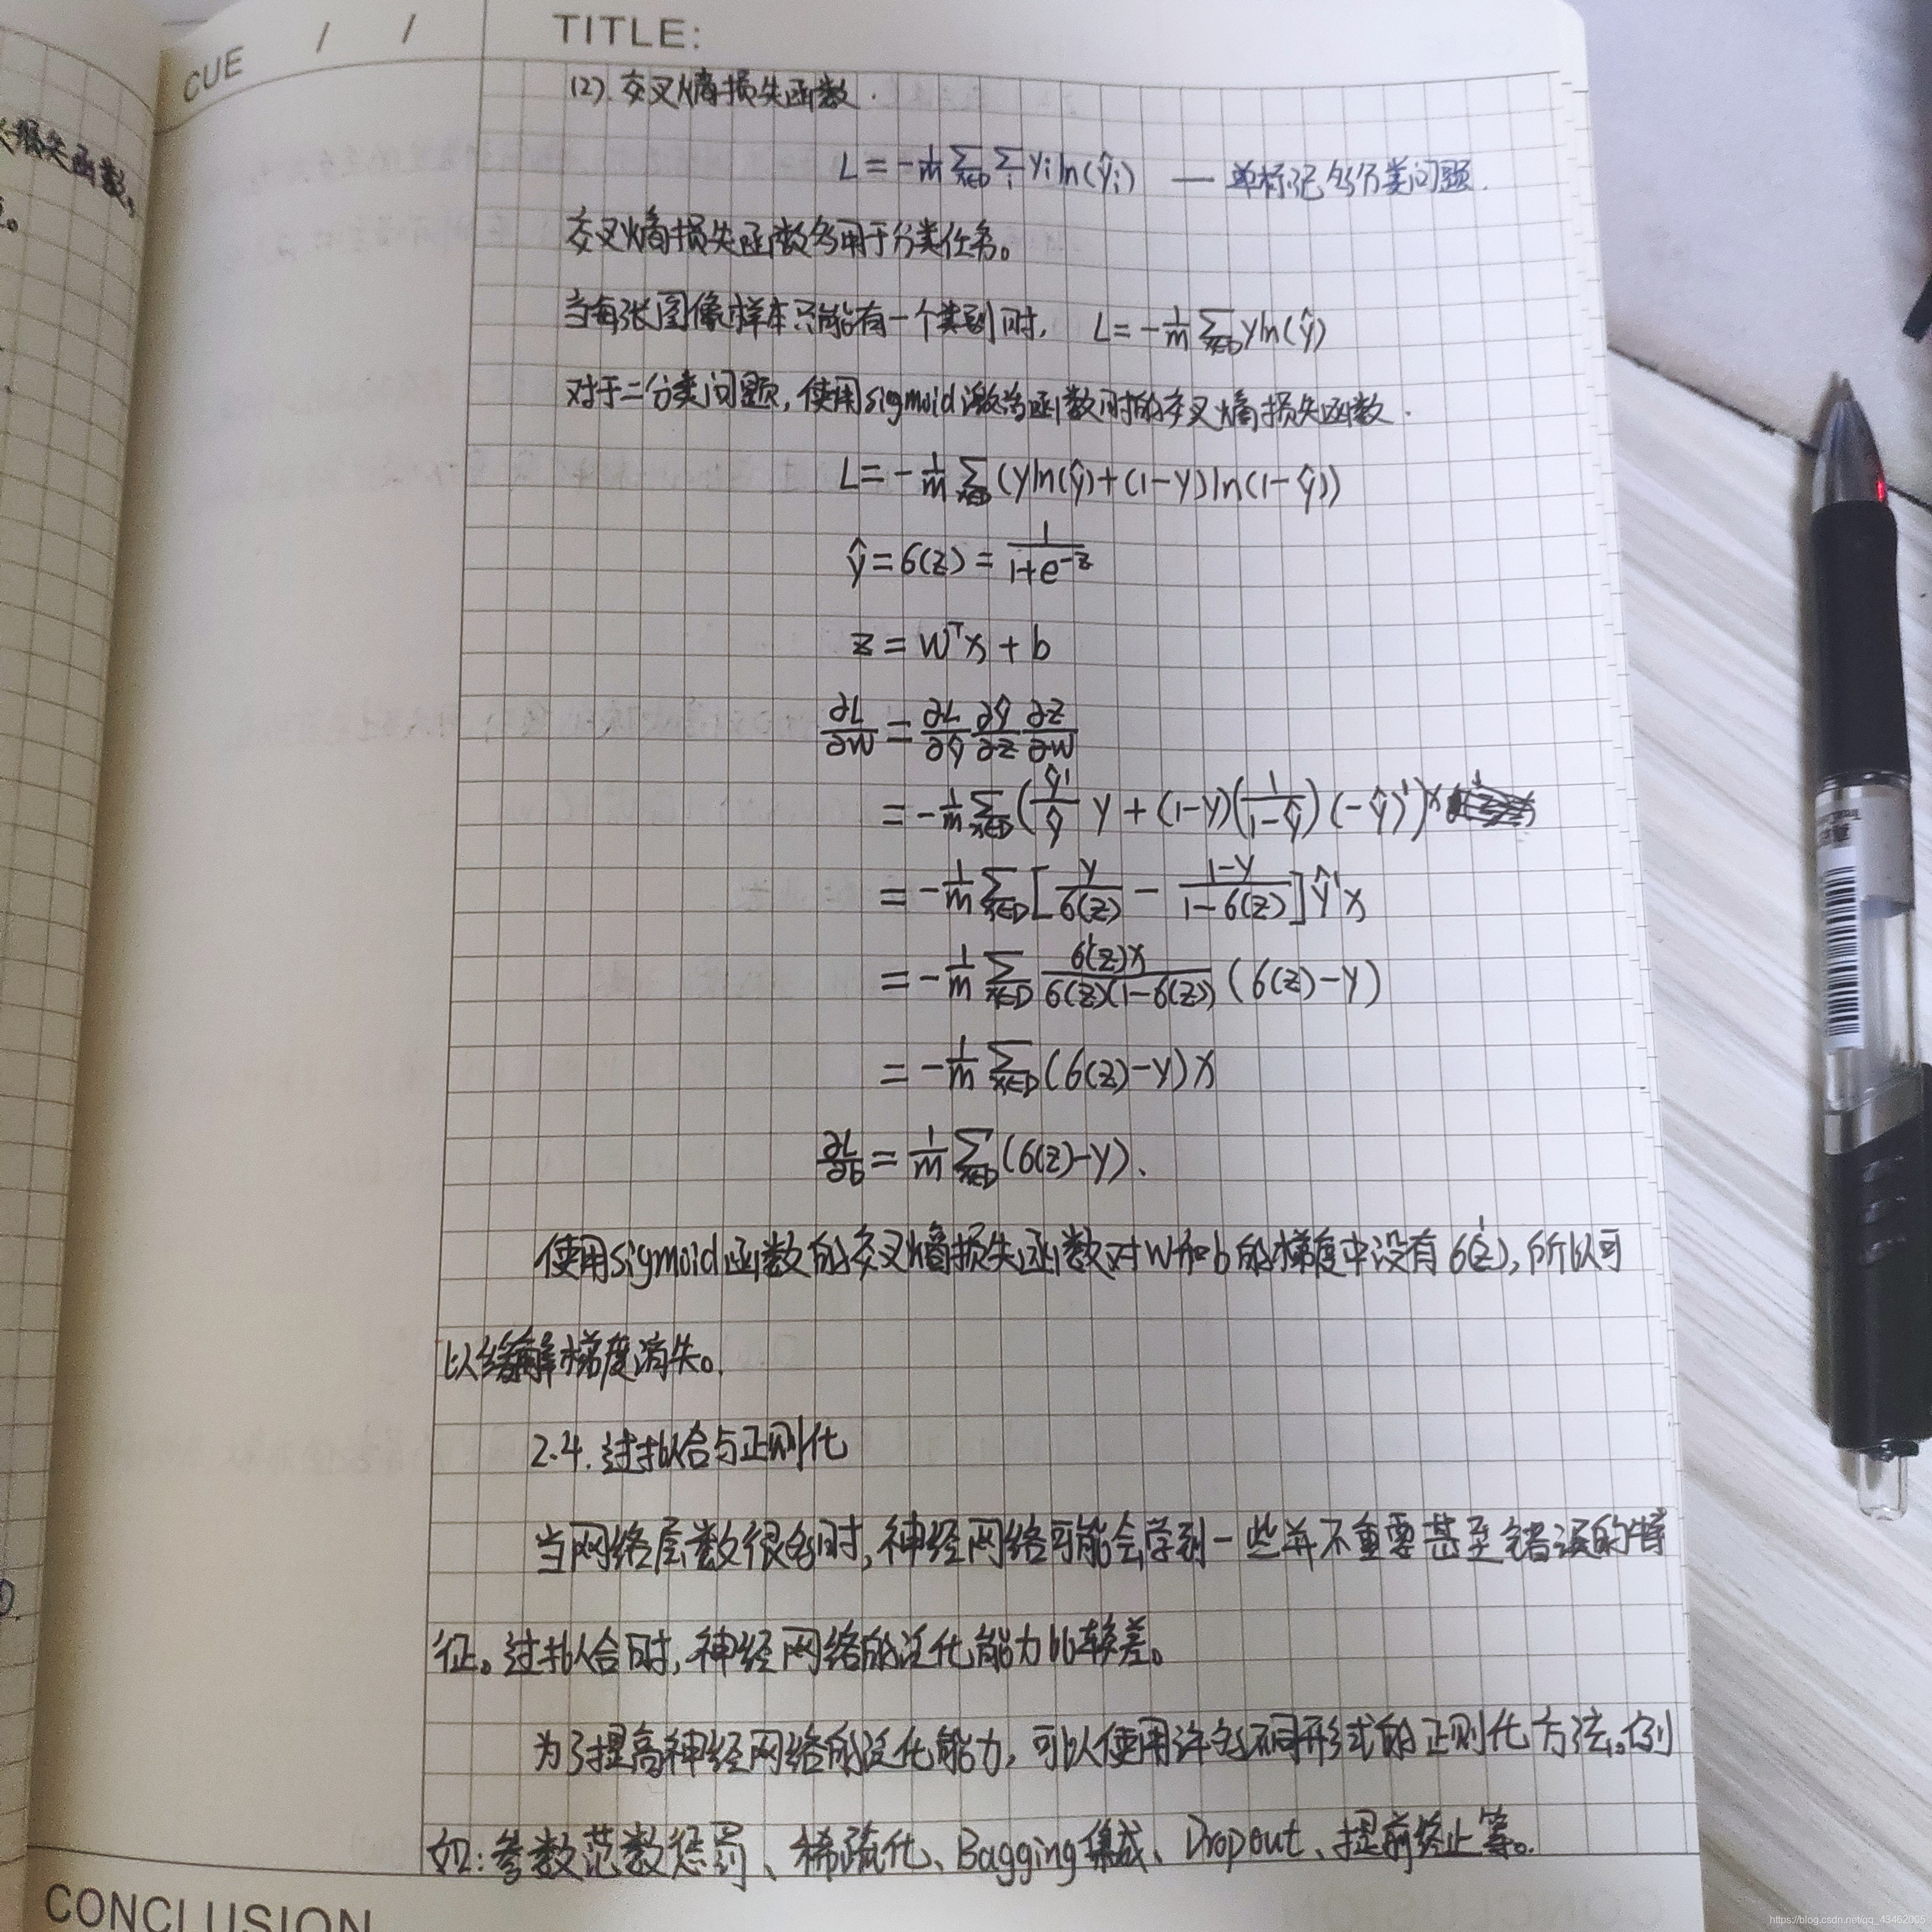 CUE / / TITLE:
失损失函数,
(2). 交叉熵损失函数.
L = -1/m ∑_{x∈D} ∑_i y_i ln(ŷ_i) — 单标记多分类问题.
交叉熵损失函数多用于分类任务。
当每张图像样本只能有一个类别时, L = -1/m ∑_{x∈D} y ln(ŷ)
对于二分类问题, 使用sigmoid激活函数时的交叉熵损失函数.
L = -1/m ∑_{x∈D} (y ln(ŷ) + (1-y) ln(1-ŷ))
ŷ = σ(z) = 1/(1+e^{-z})
z = W^T x + b
∂L/∂W = ∂L/∂ŷ ∂ŷ/∂z ∂z/∂W
= -1/m ∑_{x∈D} (ŷ'/ŷ y + (1-y)(1/(1-ŷ))(-ŷ)')x
= -1/m ∑_{x∈D} [y/σ(z) - (1-y)/(1-σ(z))]ŷ'x
= -1/m ∑_{x∈D} σ'(z)x/(σ(z)(1-σ(z))) (σ(z)-y)
= -1/m ∑_{x∈D} (σ(z)-y)x
∂L/∂b = 1/m ∑_{x∈D} (σ(z)-y).
使用sigmoid函数的交叉熵损失函数对W和b的梯度中没有σ'(z), 所以可
以缓解梯度消失。
2.4. 过拟合与正则化
当网络层数很多时, 神经网络可能会学到一些并不重要甚至错误的特
征。过拟合时, 神经网络的泛化能力比较差。
为了提高神经网络的泛化能力, 可以使用许多不同形式的正则化方法。例
如: 参数范数惩罚、稀疏化、Bagging集成、Dropout、提前终止等。
CONCLUSION
https://blog.csdn.net/qq_43462005